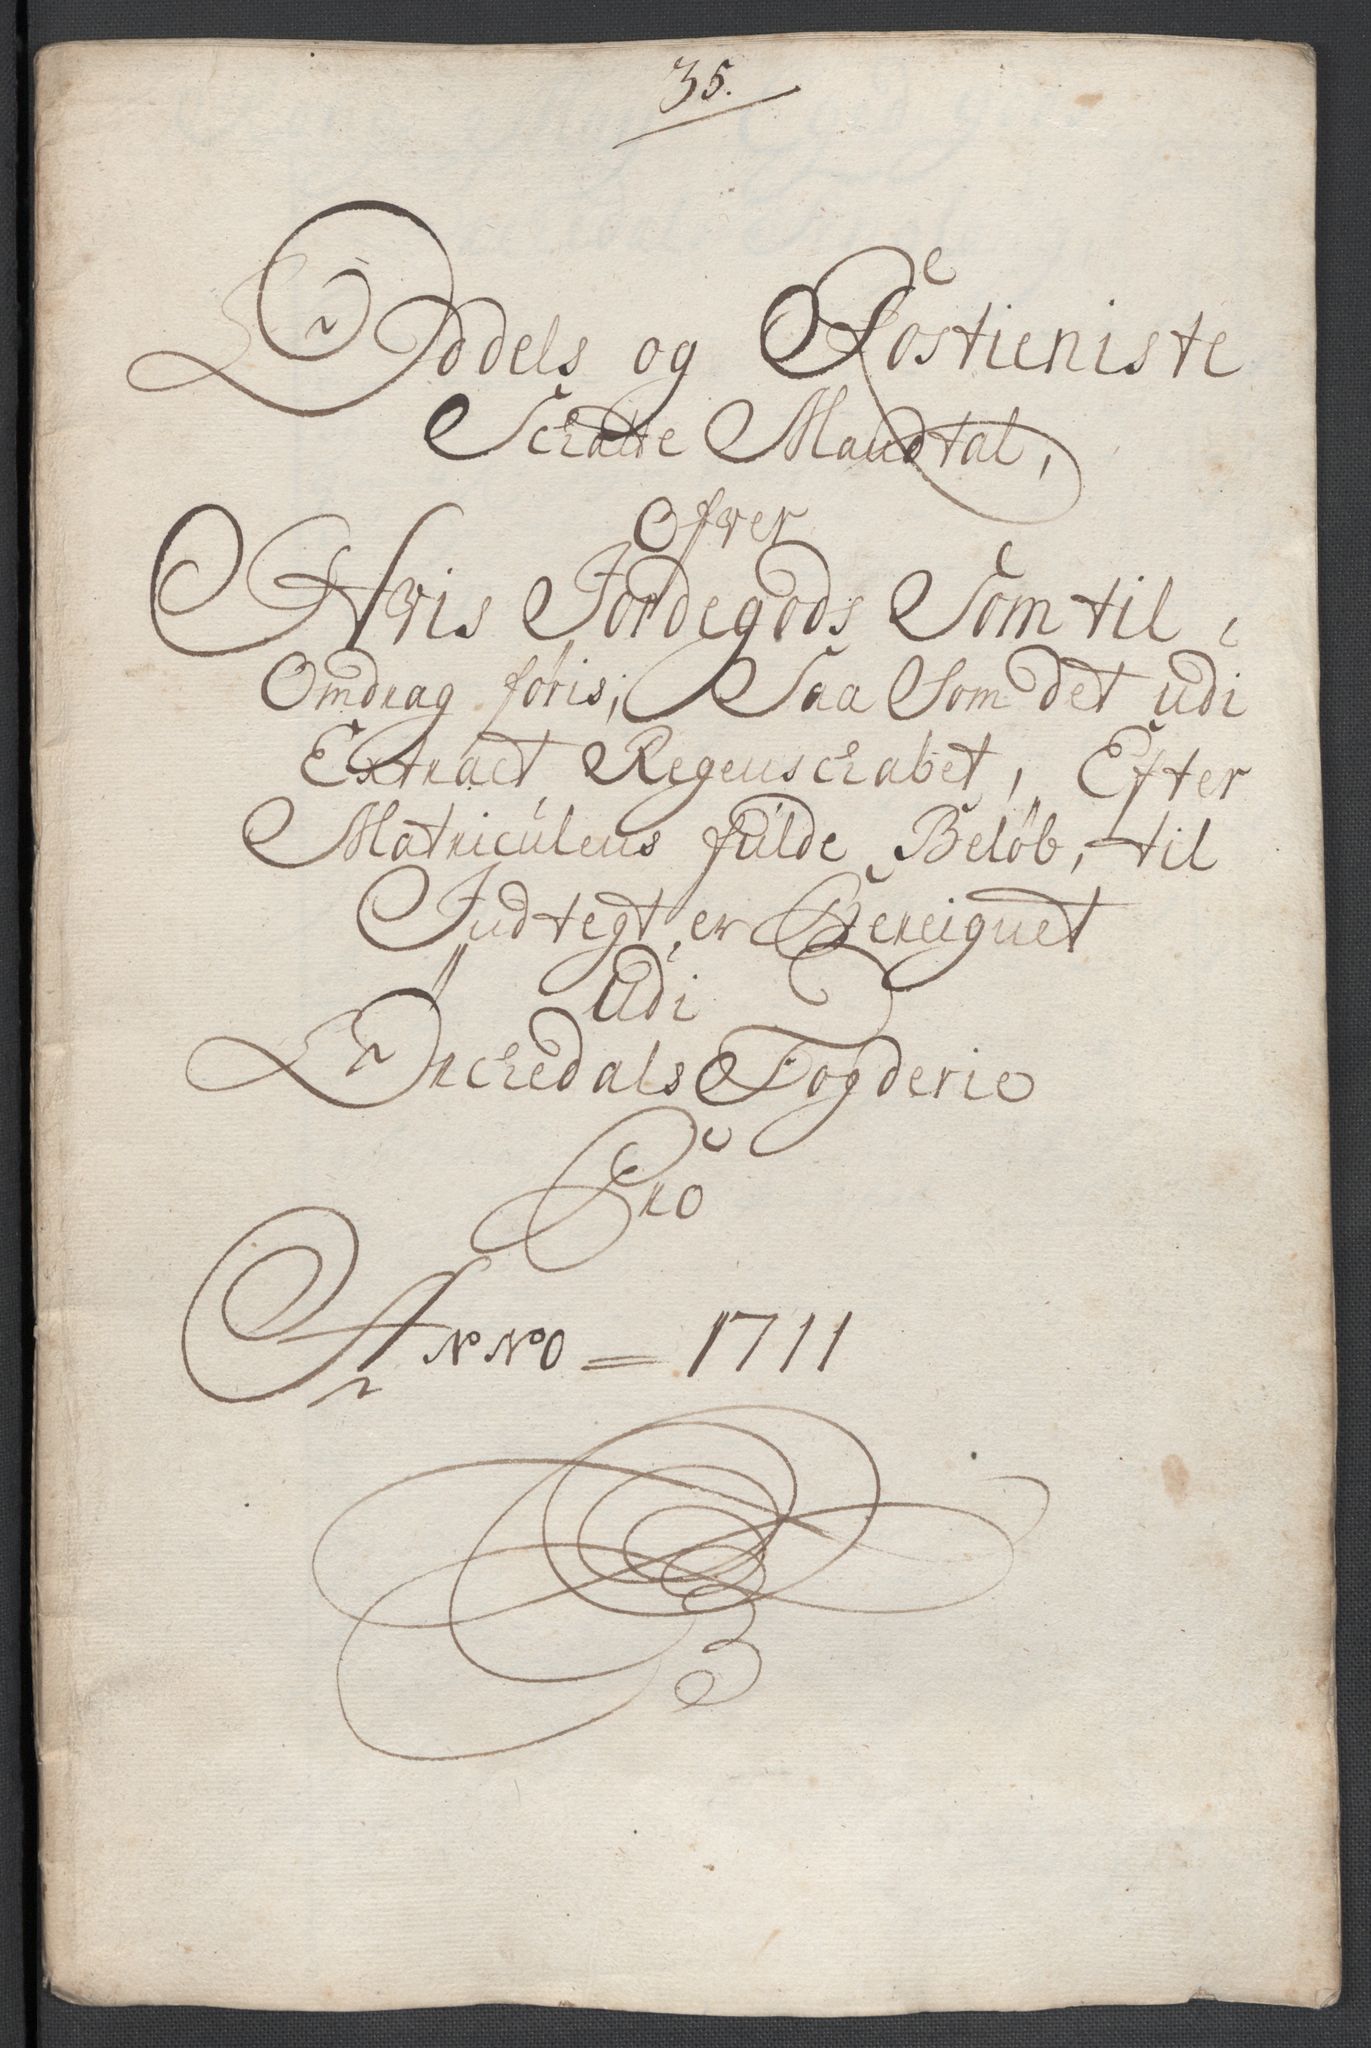 35.
Oddels og Rostieniste
Schatte Mandtal,
Ofver
Hvis Jordegods Som til
Omdrag føris, Saa Som det udi
Extract Regenschabet, Efter
Matriculens fulde Beløb, til
Indtegt er Bereignet
Udi
Orchedals Fogderie
Pro
Anno = 1711